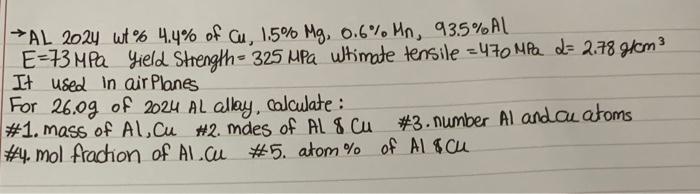 →AL 2024 wt% 4.4% of Cu, 1.5% Mg, 0.6% Mn, 93.5% Al
E=73 MPa yield Strength= 325 MPa ultimate tensile =470 MPa d= 2.78 g/cm³
It used in airPlanes
For 26.0g of 2024 AL alloy, calculate:
#1. mass of Al, Cu #2. moles of Al & Cu #3. number Al and cu atoms
#4. mol fraction of Al. Cu #5. atom % of Al & Cu